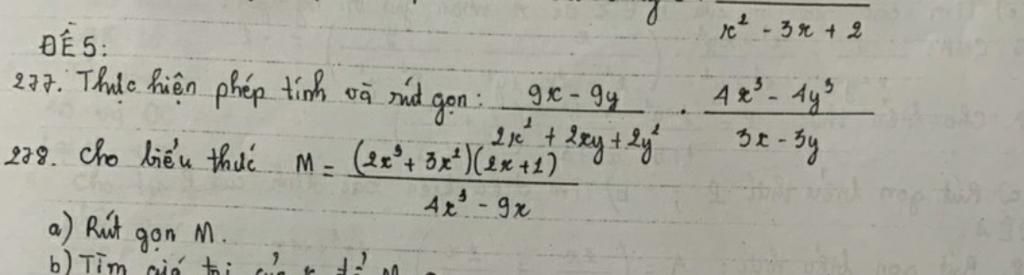 x² - 3x + 2
ĐỀ 5:
277. Thực hiện phép tính và rút gọn: (9x - 9y)/(2x² + 2xy + 2y²) . (4x³ - 4y³)/(3x - 3y)
278. Cho biểu thức M = (2x³ + 3x²)(2x + 1)/(4x³ - 9x)
a) Rút gọn M.
b) Tìm giá trị của x để M